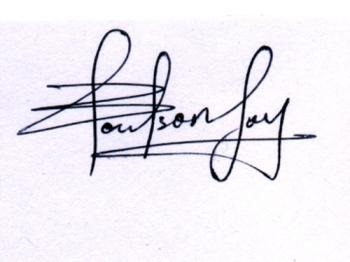 Poulson Joy